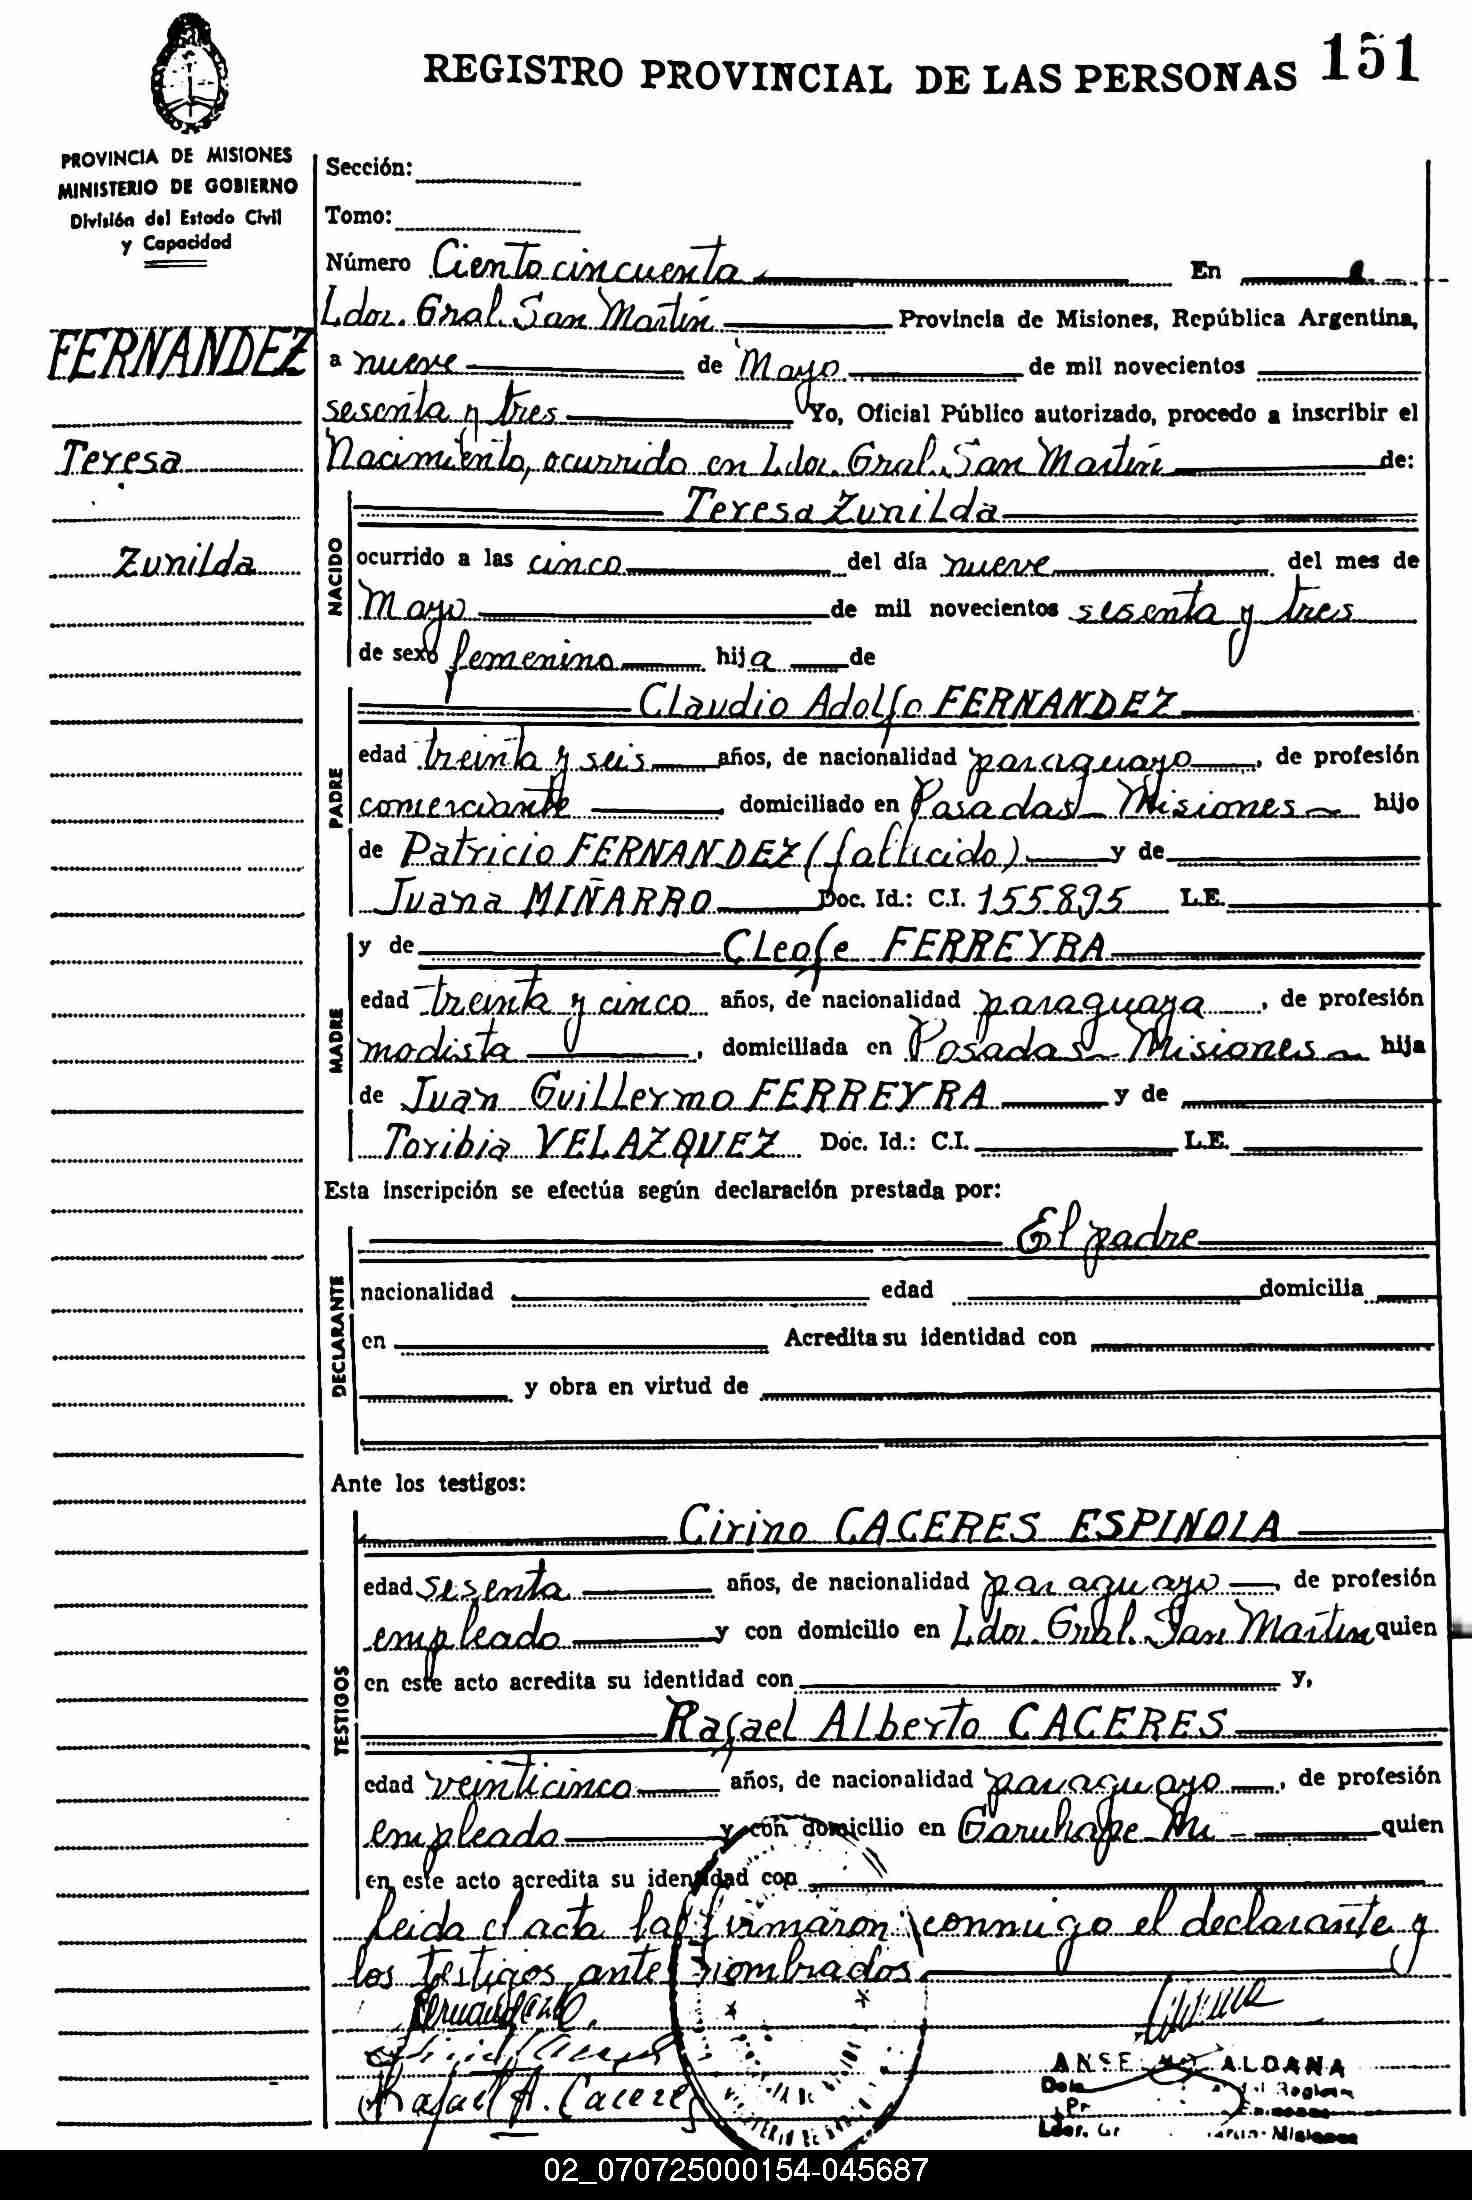 REGISTRO PROVINCIAL DE LAS PERSONAS 151
PROVINCIA DE MISIONES
MINISTERIO DE GOBIERNO
División del Estado Civil
y Capacidad
FERNANDEZ
Teresa
Zunilda
Sección:
Tomo:
Número Ciento cincuenta En
Ldor. Gral. San Martín Provincia de Misiones, República Argentina,
a nueve de Mayo de mil novecientos
sesenta y tres Yo, Oficial Público autorizado, procedo a inscribir el
Nacimiento, ocurrido en Ldor. Gral. San Martín de:
NACIDO
Teresa Zunilda
ocurrido a las cinco del día nueve del mes de
Mayo de mil novecientos sesenta y tres
de sexo femenino hija de
PADRE
Claudio Adolfo FERNANDEZ
edad treinta y seis años, de nacionalidad paraguayo, de profesión
comerciante domiciliado en Posadas - Misiones - hijo
de Patricio FERNANDEZ (fallicido) y de
Juana MIÑARRO Doc. Id.: C.I. 155.895 L.E.
MADRE
y de Cleofe FERREYRA
edad treinta y cinco años, de nacionalidad paraguaya, de profesión
modista, domiciliada en Posadas - Misiones - hija
de Juan Guillermo FERREYRA y de
Toribia VELAZQUEZ Doc. Id.: C.I. L.E.
Esta inscripción se efectúa según declaración prestada por:
DECLARANTE
El padre
nacionalidad edad domicilia
en Acredita su identidad con
y obra en virtud de
Ante los testigos:
TESTIGOS
Cirino CACERES ESPINOLA
edad sesenta años, de nacionalidad paraguayo, de profesión
empleado y con domicilio en Ldor. Gral. San Martín quien
en este acto acredita su identidad con y,
Rafael Alberto CACERES
edad veinticinco años, de nacionalidad paraguayo, de profesión
empleado y con domicilio en Garuhape - Mi - quien
en este acto acredita su identidad con
Leida el acta la firmaron conmigo el declarante y
los testigos antes nombrados
Rafael A. Caceres
ALDANA
Misiones
02_070725000154-045687